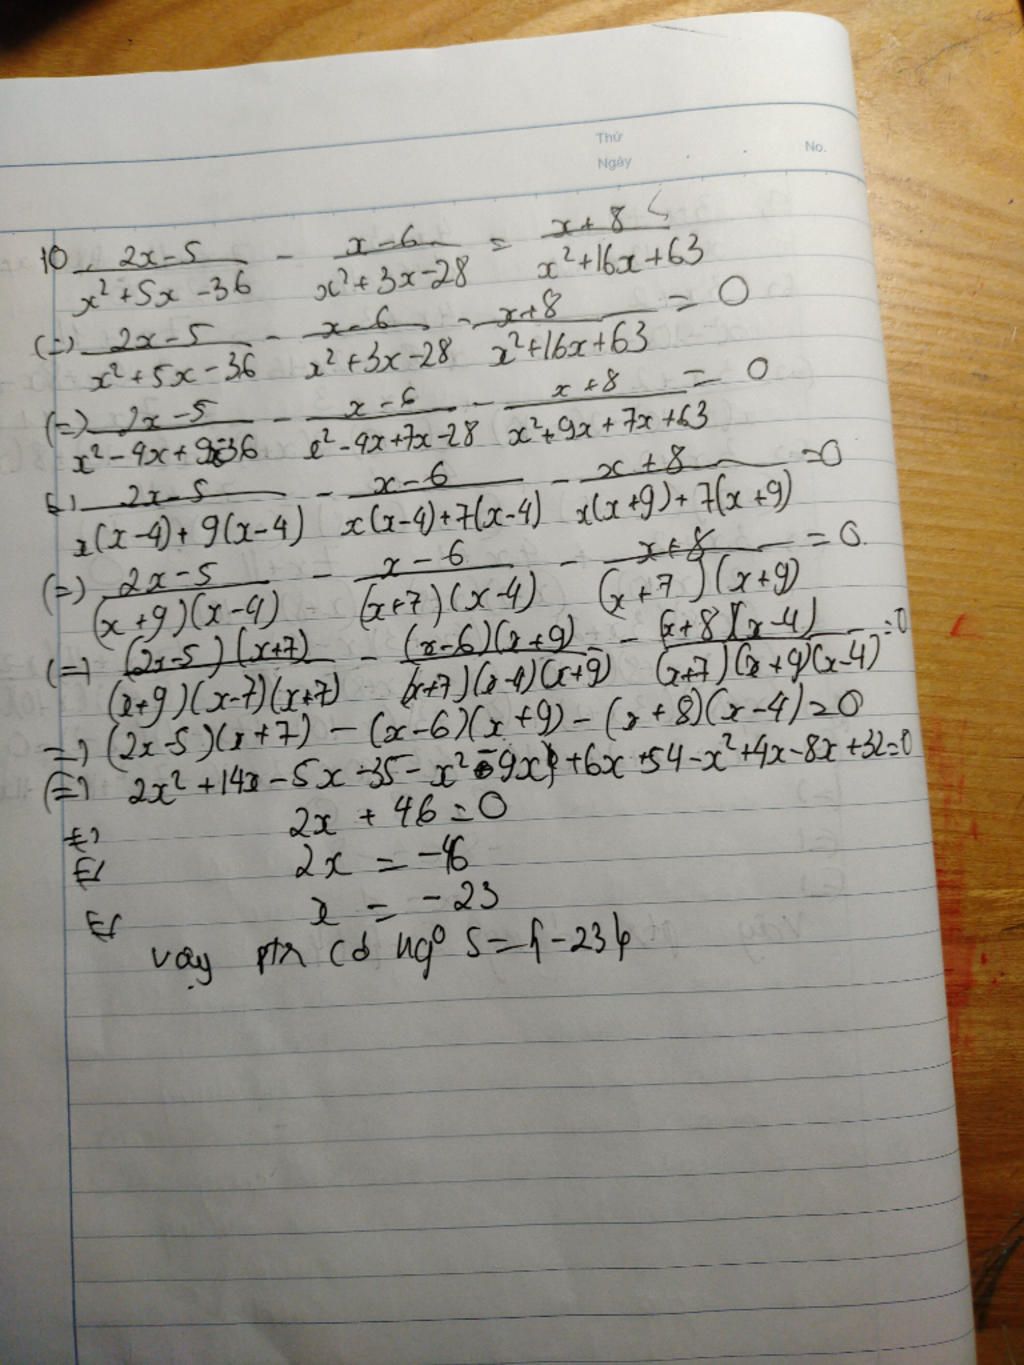 Thứ
Ngày
No.
10 (2x-5)/(x²+5x-36) - (x-6)/(x²+3x-28) = (x+8)/(x²+16x+63)
(=) (2x-5)/(x²+5x-36) - (x-6)/(x²+3x-28) - (x+8)/(x²+16x+63) = 0
(=) (2x-5)/(x²-4x+9x-36) - (x-6)/(x²-4x+7x-28) - (x+8)/(x²+9x+7x+63) = 0
(=) (2x-5)/(x(x-4)+9(x-4)) - (x-6)/(x(x-4)+7(x-4)) - (x+8)/(x(x+9)+7(x+9)) =0
(=) (2x-5)/((x+9)(x-4)) - (x-6)/((x+7)(x-4)) - (x+8)/((x+7)(x+9)) = 0.
(=) ((2x-5)(x+7))/((x+9)(x-7)(x+7)) - ((x-6)(x+9))/((x+7)(x-4)(x+9)) - ((x+8)(x-4))/((x+7)(x+9)(x-4)) =0
=) (2x-5)(x+7) - (x-6)(x+9) - (x+8)(x-4)=0
(=) 2x²+14x-5x-35-x²-9x+6x+54-x²+4x-8x+32=0
(=) 2x + 46 =0
(=) 2x = -46
(=) x = -23
Vậy ptr có ngº S={-23}